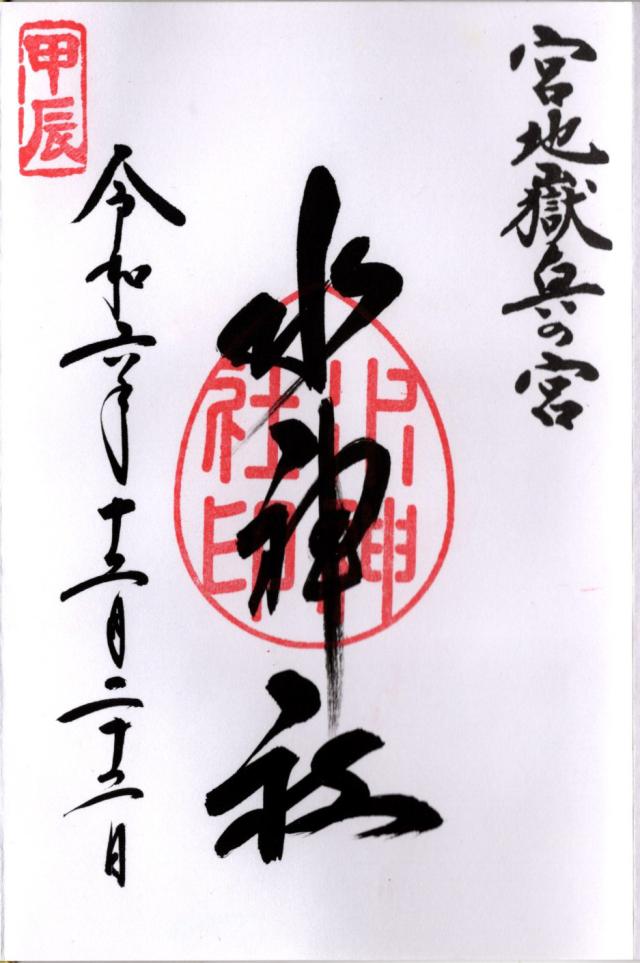 宮地嶽奥の宮
水神社
水神
社印
令和六年十二月二十二日
甲辰